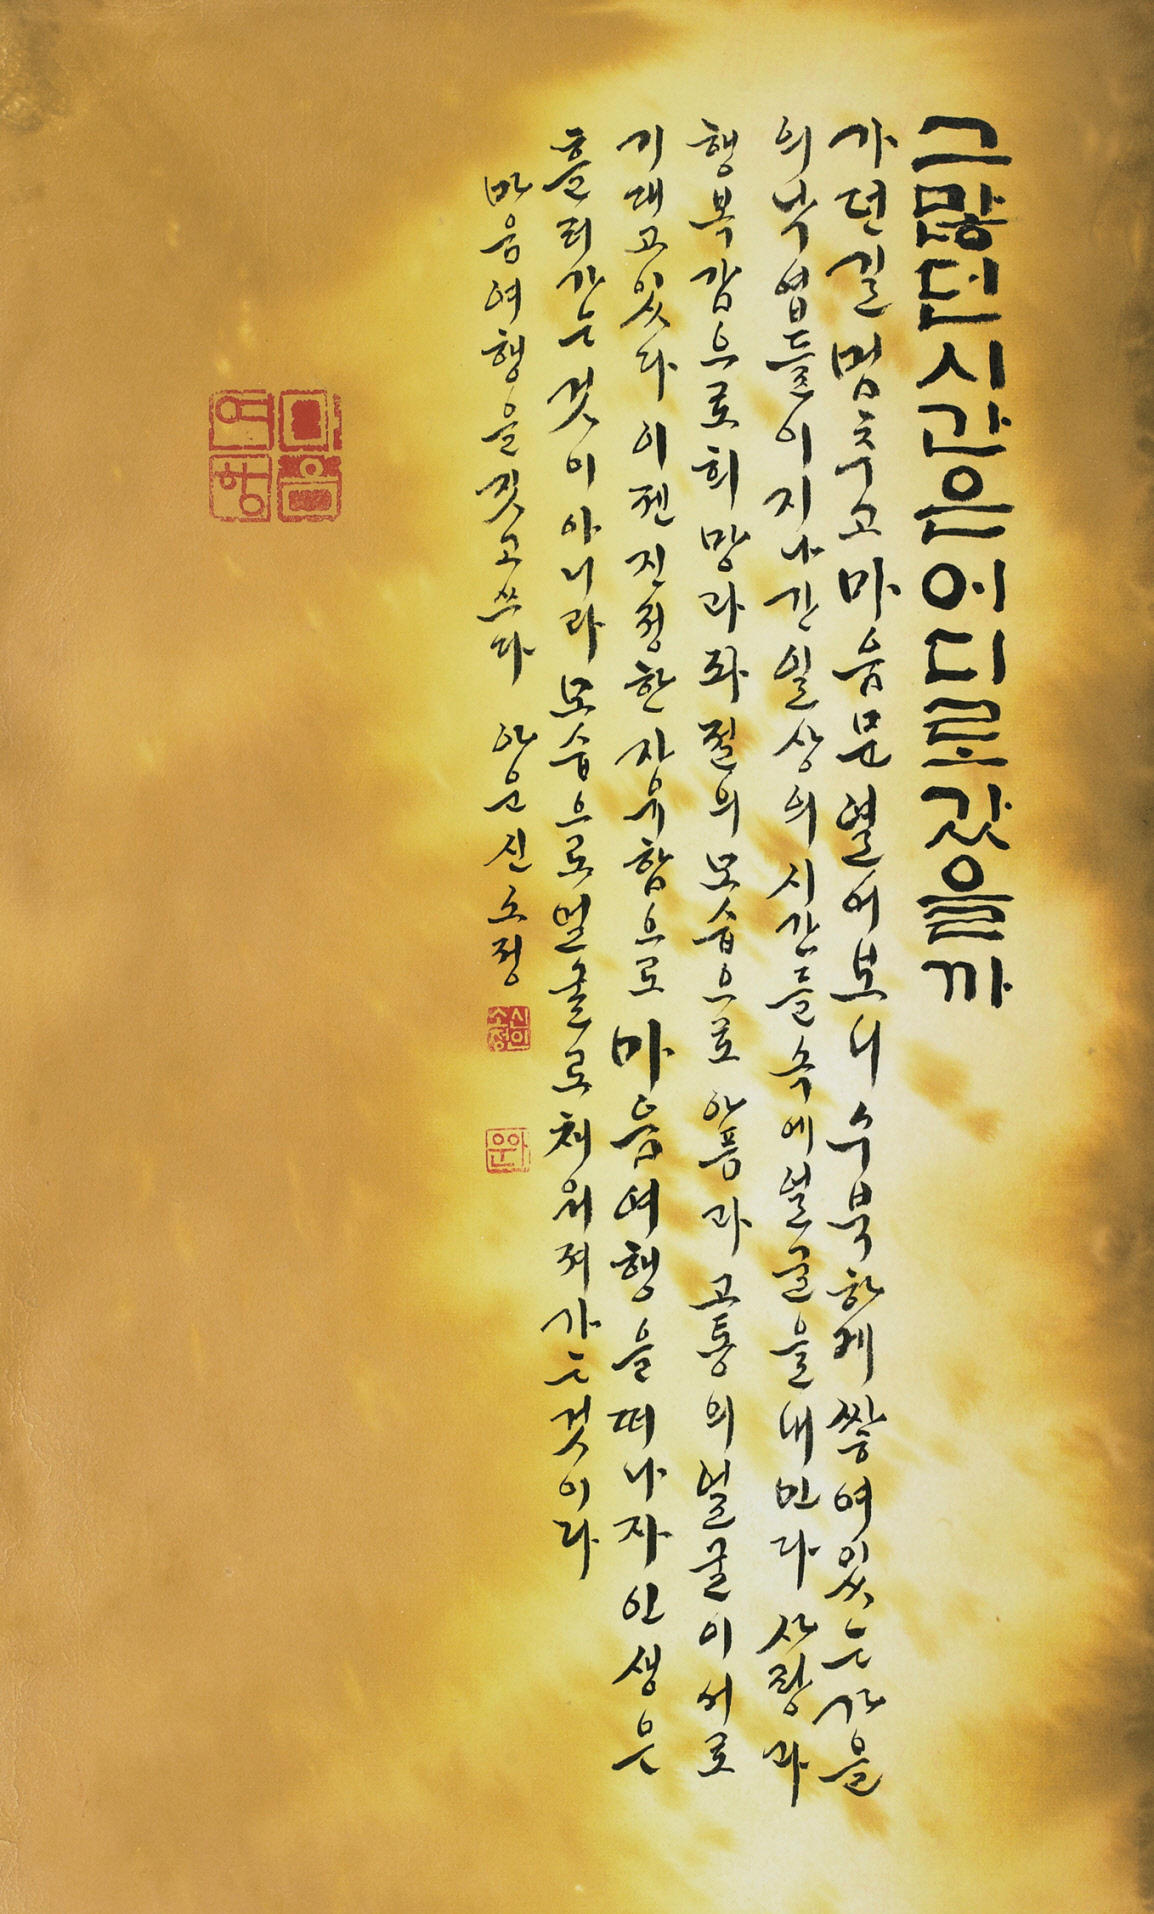 그 많던 시간은 어디로 갔을까
가던 길 멈추고 마음 문 열어보니 수북하게 쌓여있는 가을
의 낙엽들이 지나간 일상의 시간들 속에 얼굴을 내민다 사랑과
행복감으로 희망과 좌절의 모습으로 아픔과 고통의 얼굴이 서로
기대고 있다 이젠 진정한 자유함으로 마음여행을 떠나자 인생은
흘러가는 것이 아니라 모습으로 얼굴로 채워져 가는 것이다
마음여행을 짓고 쓰다 아운 신소정
신인소정
아운
마음여행